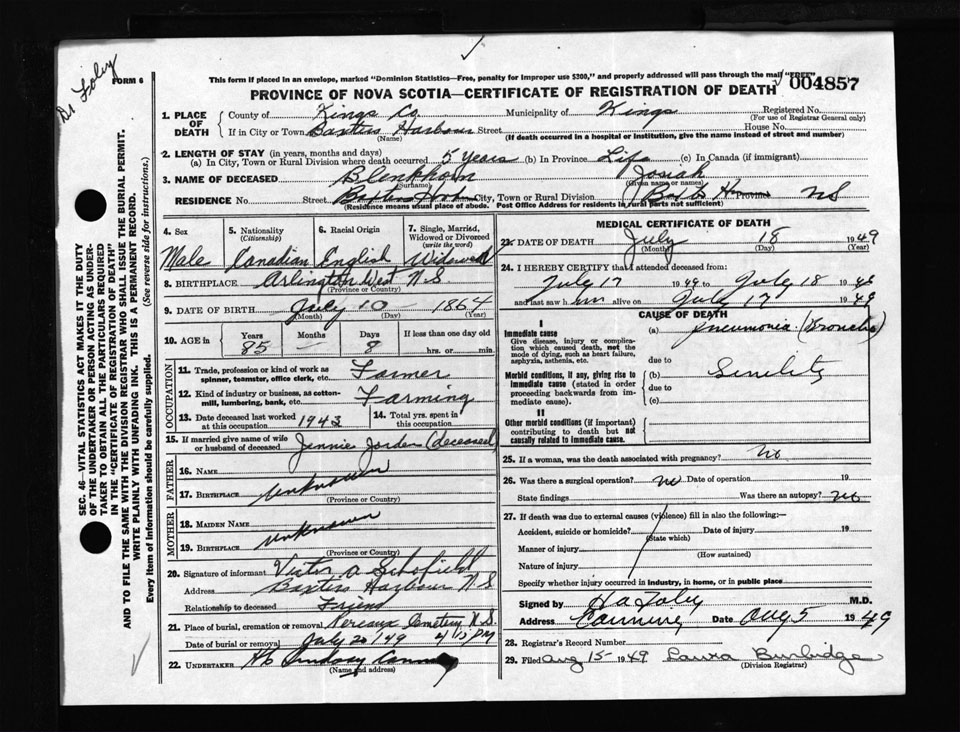 Dr Foley
FORM 6
This form if placed in an envelope, marked "Dominion Statistics—Free, penalty for improper use $300," and properly addressed will pass through the mail "FREE"
004857
PROVINCE OF NOVA SCOTIA—CERTIFICATE OF REGISTRATION OF DEATH
1. PLACE OF DEATH County of Kings Co. Municipality of Kings Registered No.
(For use of Registrar General only)
If in City or Town Baxters Harbour Street House No.
(Name) (If death occurred in a hospital or institution, give the name instead of street and number)
2. LENGTH OF STAY (in years, months and days)
(a) In City, Town or Rural Division where death occurred 5 years (b) In Province Life (c) In Canada (if immigrant)
3. NAME OF DECEASED Blenkhorn Josiah
(Surname) (Given name or names)
RESIDENCE No. Street Baxters City, Town or Rural Division Province NS
(Residence means usual place of abode. Post Office Address for residents in rural parts not sufficient)
4. Sex Male
5. Nationality (Citizenship) Canadian
6. Racial Origin English
7. Single, Married, Widowed or Divorced (write the word) Widowed
8. BIRTHPLACE Arlington West N.S.
(Province or Country)
9. DATE OF BIRTH July 10 1864
(Month) (Day) (Year)
10. AGE in Years 85 Months — Days 8 If less than one day old
hrs. or min.
OCCUPATION
11. Trade, profession or kind of work as spinner, teamster, office clerk, etc. Farmer
12. Kind of industry or business, as cotton-mill, lumbering, bank, etc. Farming
13. Date deceased last worked at this occupation 1943
14. Total yrs. spent in this occupation
15. If married give name of wife or husband of deceased Jennie Jorden (deceased)
FATHER
16. Name
17. Birthplace unknown
(Province or Country)
MOTHER
18. Maiden Name
19. Birthplace unknown
(Province or Country)
20. Signature of informant Victor A Schofield
Address Baxters Harbour N.S
Relationship to deceased Friend
21. Place of burial, cremation or removal Pereaux Cemetery N.S.
Date of burial or removal July 20/49 PM
22. UNDERTAKER Lindsay Canning
(Name and Address)
MEDICAL CERTIFICATE OF DEATH
23. DATE OF DEATH July 18 1949
(Month) (Day) (Year)
24. I HEREBY CERTIFY that I attended deceased from:
July 17 1949 to July 18 19
and last saw him alive on July 17 1949
CAUSE OF DEATH
I
Immediate cause
Give disease, injury or complication which caused death, not the mode of dying, such as heart failure, asphyxia, asthenia, etc.
(a) Pneumonia (Broncho)
due to
Morbid conditions, if any, giving rise to immediate cause (stated in order proceeding backwards from immediate cause).
(b) Senility
due to
(c)
II
Other morbid conditions (if important) contributing to death but not causally related to immediate cause.
25. If a woman, was the death associated with pregnancy? No
26. Was there a surgical operation? No Date of operation 19
State findings Was there an autopsy? No
27. If death was due to external causes (violence) fill in also the following:—
Accident, suicide or homicide? Date of injury 19
(State which)
Manner of injury
(How sustained)
Nature of injury
Specify whether injury occurred in industry, in home, or in public place
Signed by H A Foley M.D.
Address Canning Date Aug 5 1949
28. Registrar's Record Number
29. Filed Aug 15- 1949 Laura Burbidge
(Division Registrar)
SEC. 46—VITAL STATISTICS ACT MAKES IT THE DUTY
OF THE UNDERTAKER OR PERSON ACTING AS UNDER-
TAKER TO OBTAIN ALL THE PARTICULARS REQUIRED
IN THE "CERTIFICATE OF REGISTRATION OF DEATH"
AND TO FILE THE SAME WITH THE DIVISION REGISTRAR WHO SHALL ISSUE THE BURIAL PERMIT.
WRITE PLAINLY WITH UNFADING INK. THIS IS A PERMANENT RECORD.
Every item of Information should be carefully supplied. (See reverse side for instructions.)